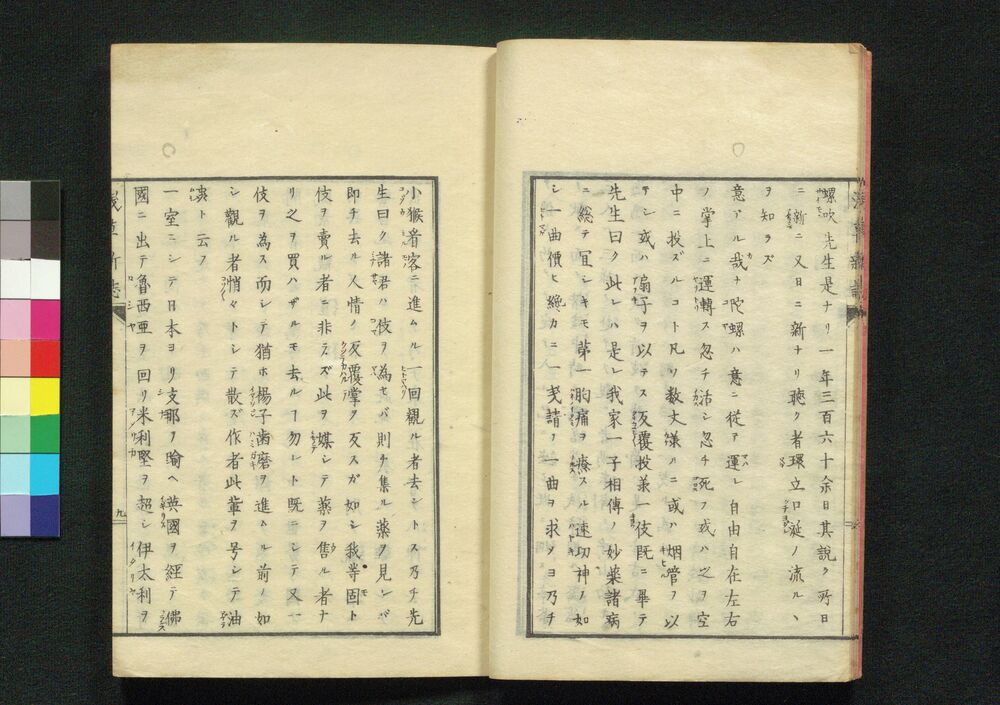 螺吹先生是ナリ一年三百六十余日其説ク所日
ニ新ニ又日ニ新ナリ聴ク者環立口涎ノ流ル丶
ヲ知ラズ
意アル哉ナ陀螺ハ意ニ従ア運レ自由自在左右
ノ掌上ニ運轉ス忽チ活シ忽チ死ス或ハ之ヲ空
中ニ投ズルコト凡ソ数丈 ハニ或ハ烟管ヲ以
テシ或ハ扇子ヲ以テス反覆投 一伎既ニ畢テ
先生曰ク此レハ是レ我家一子相傳ノ妙薬諸病
ニ総テ宜シキモ第一胸痛ヲ療スル速功神ノ如
シ一曲價ヒ カニ一 請フ一曲ヲ求メヨ乃チ
小猴看客ニ進ムル一回観ル者去ントス乃チ先
生曰ク諸君ハ伎ヲ為セバ則チ集ル薬ヲ見レバ
即チ去ル人情ノ反覆掌ク反スガ如シ我等固ト
伎ヲ賣ル者ニ非ラズ此ヲ媒シテ薬ヲ售ル者ナ
リ之ヲ買ハザルモ去ルヿ勿レト既ニシテ又一
伎ヲ為ス而シテ猶ホ楊子歯磨ヲ進ムル前ノ如
シ觀ル者悄々トシテ散ズ作者此輩ヲ号シテ油
 ト云フ
一室ニシテ日本ヨリ支那ヲ踰ヘ英國ヲ経テ佛
國ニ出テ魯西亜ヲ回リ米利堅ヲ超シ伊太利ヲ
九